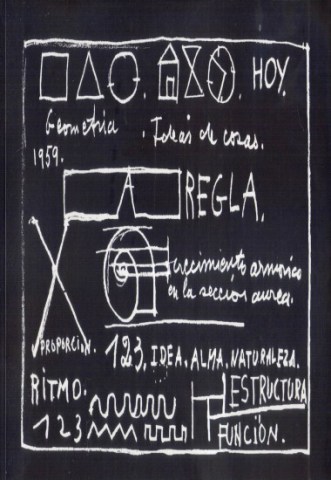 HOY.
Geometria . Ideas de cosas.
1959.
A REGLA.
crecimiento armonico
en la sección aurea.
PROPORCIÓN. 123, IDEA. ALMA. NATURALEZA.
RITMO. ESTRUCTURA
123 FUNCIÓN.